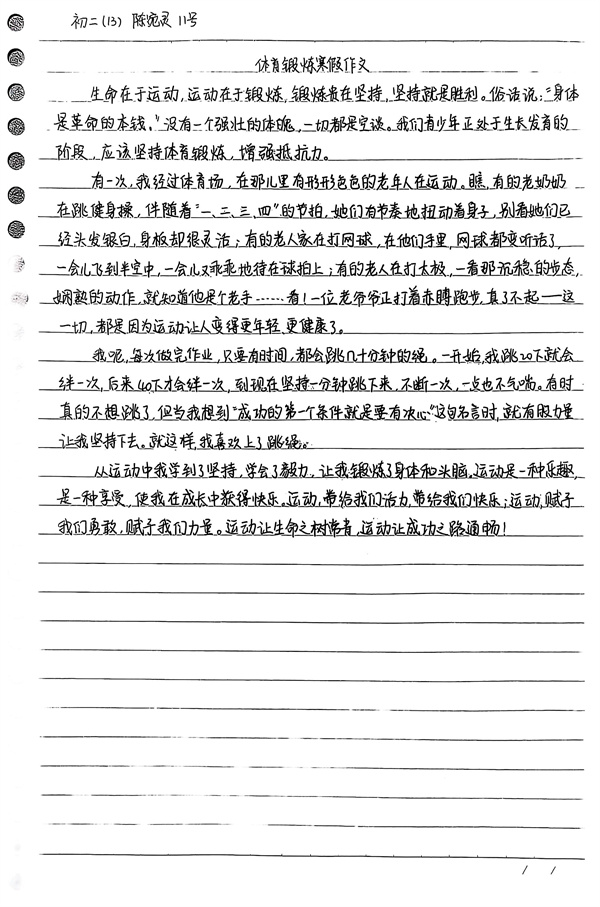 初二(13) 陈宛灵 11号
体育锻炼寒假作文
生命在于运动,运动在于锻炼,锻炼贵在坚持,坚持就是胜利。俗话说:“身体
是革命的本钱。”没有一个强壮的体魄,一切都是空谈。我们青少年正处于生长发育的
阶段,应该坚持体育锻炼,增强抵抗力。
有一次,我经过体育场,在那儿里有形形色色的老年人在运动。瞧,有的老奶奶
在跳健身操,伴随着“一、二、三、四”的节拍,她们有节奏地扭动着身子,别看她们已
经头发银白,身板却很灵活;有的老人家在打网球,在他们手里,网球都变听话了,
一会儿飞到半空中,一会儿又乖乖地待在球拍上;有的老人在打太极,一看那沉稳的步态,
娴熟的动作,就知道他是个老手……看!一位老爷爷正打着赤膊跑步,真了不起——这
一切,都是因为运动让人变得更年轻,更健康了。
我呢,每次做完作业,只要有时间,都会跳几十分钟的绳。一开始,我跳20下就会
绊一次,后来40下才会绊一次,到现在坚持一分钟跳下来,不断一次,一点也不气喘。有时
真的不想跳了,但当我想到“成功的第一个条件就是要有决心”这句名言时,就有股力量
让我坚持下去。就这样,我喜欢上了跳绳。
从运动中我学到了坚持,学会了毅力,让我锻炼了身体和头脑。运动是一种乐趣,
是一种享受,使我在成长中获得快乐。运动,带给我们活力,带给我们快乐;运动,赋予
我们勇敢,赋予我们力量。运动让生命之树常青,运动让成功之路通畅!
/ /